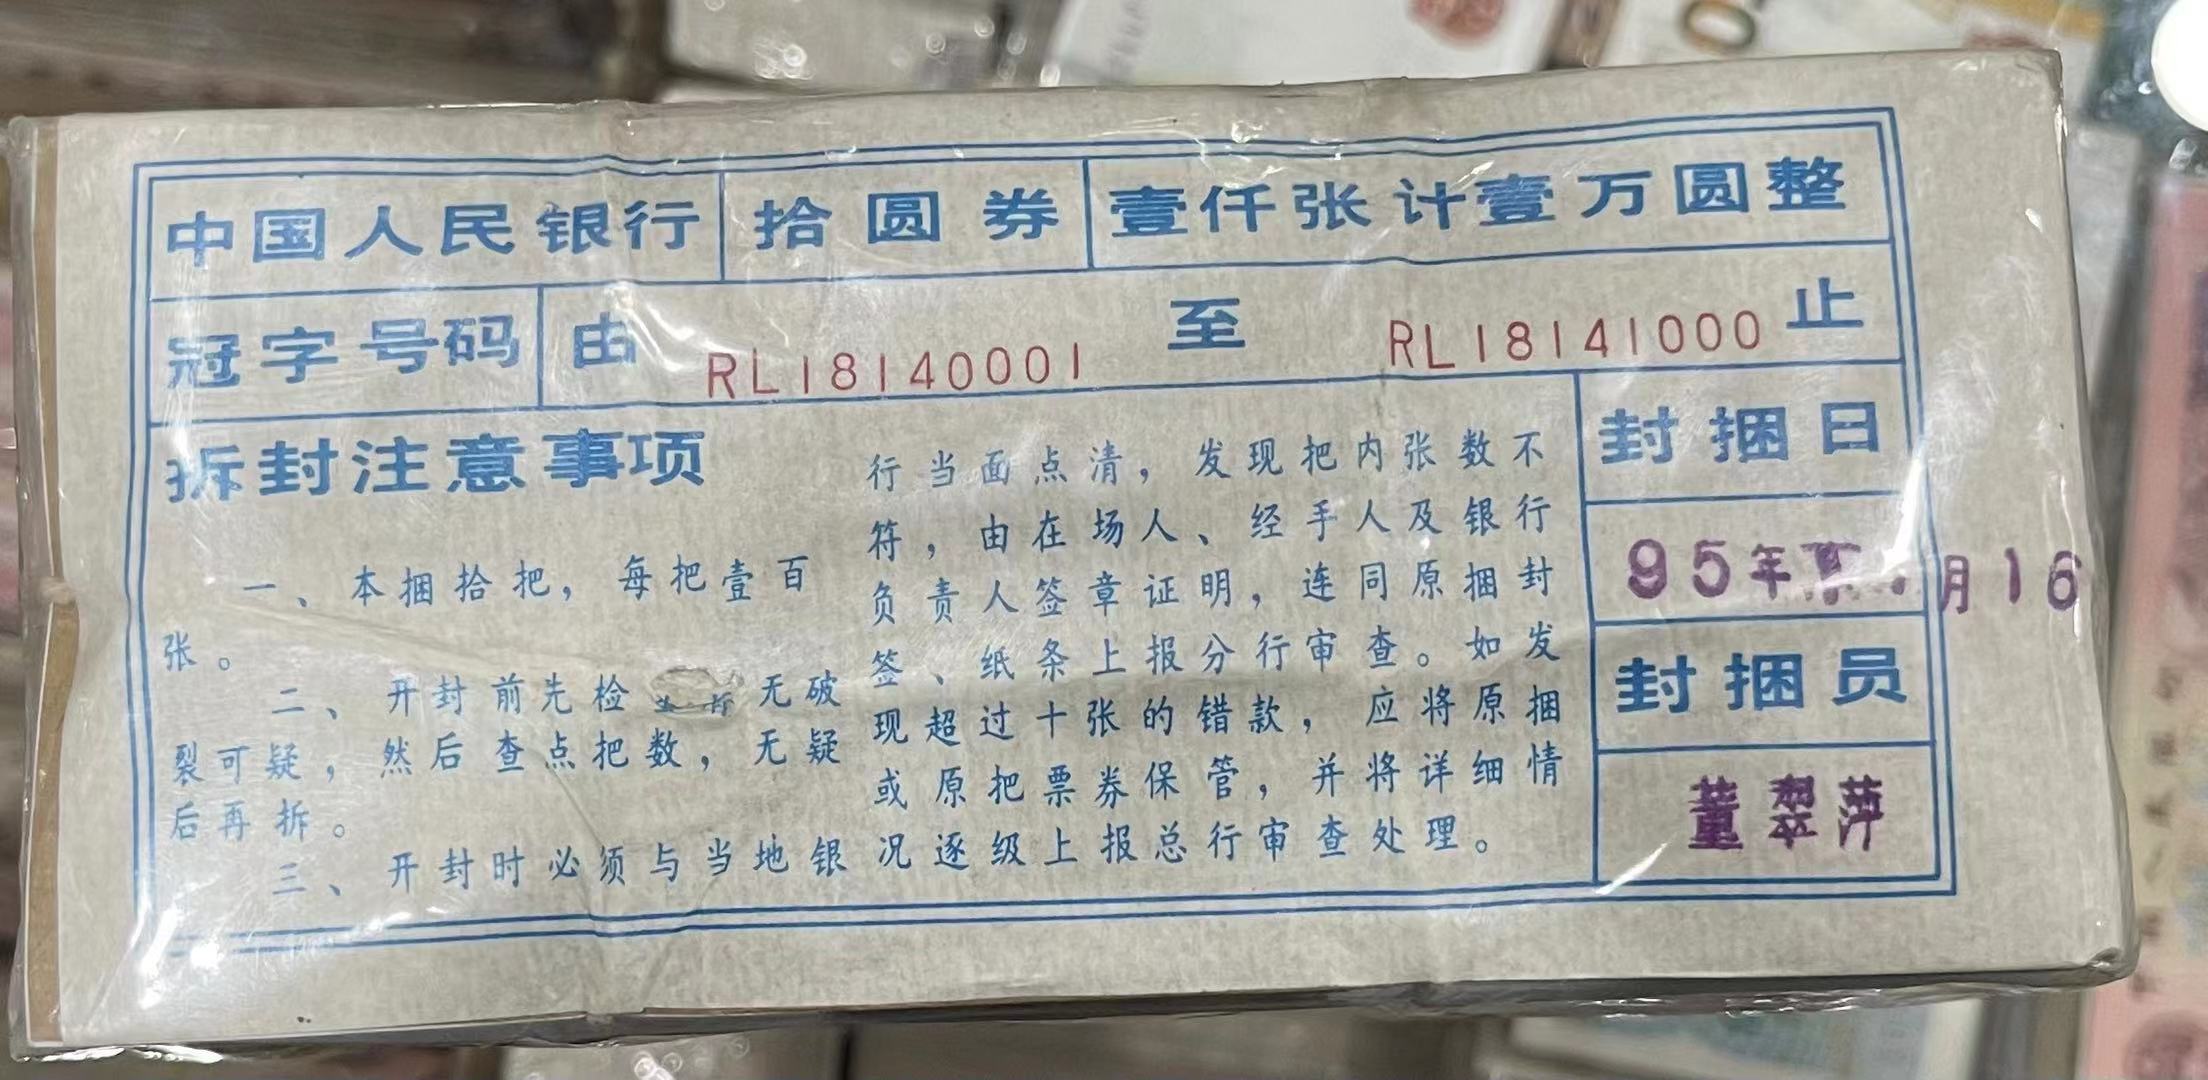 中国人民银行 拾圆券 壹仟张计壹万圆整
冠字号码 由 RL18140001 至 RL18141000 止
拆封注意事项
一、本捆拾把，每把壹百
张。
二、开封前先检 无破
裂可疑，然后查点把数，无疑
后再拆。
三、开封时必须与当地银
行当面点清，发现把内张数不
符，由在场人、经手人及银行
负责人签章证明，连同原捆封
签、纸条上报分行审查。如发
现超过十张的错款，应将原捆
或原把票券保管，并将详细情
况逐级上报总行审查处理。
封捆日
95年 月16
封捆员
董翠萍